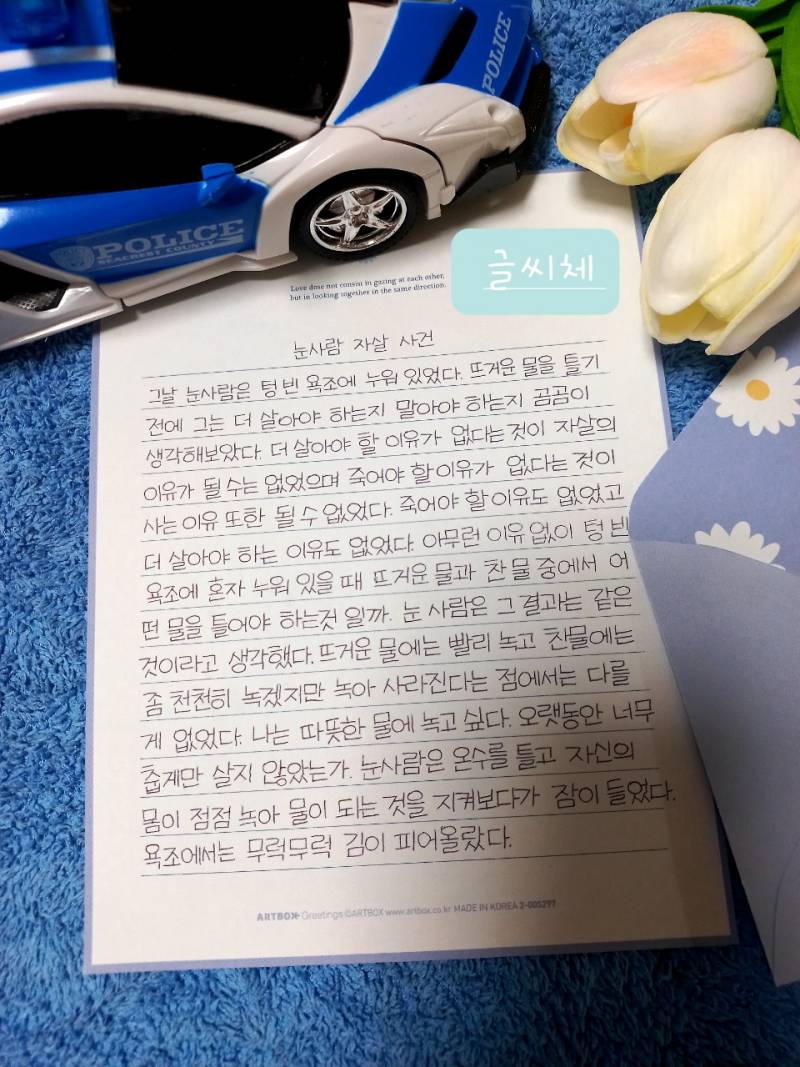 POLICE
POLICE
SEACREST COUNTY
Love dose not consist in gazing at each other,
but in looking together in the same direction.
글씨체
눈사람 자살 사건
그날 눈사람은 텅 빈 욕조에 누워 있었다. 뜨거운 물을 틀기
전에 그는 더 살아야 하는지 말아야 하는지 곰곰이
생각해보았다. 더 살아야 할 이유가 없다는 것이 자살의
이유가 될 수는 없었으며 죽어야 할 이유가 없다는 것이
사는 이유 또한 될 수 없었다. 죽어야 할 이유도 없었고
더 살아야 하는 이유도 없었다. 아무런 이유 없이 텅 빈
욕조에 혼자 누워 있을 때 뜨거운 물과 찬 물 중에서 어
떤 물을 틀어야 하는것 일까. 눈 사람은 그 결과는 같은
것이라고 생각했다. 뜨거운 물에는 빨리 녹고 찬물에는
좀 천천히 녹겠지만 녹아 사라진다는 점에서는 다를
게 없었다. 나는 따뜻한 물에 녹고 싶다. 오랫동안 너무
춥게만 살지 않았는가. 눈사람은 온수를 틀고 자신의
몸이 점점 녹아 물이 되는 것을 지켜보다가 잠이 들었다.
욕조에서는 무럭무럭 김이 피어올랐다.
ARTBOX Greetings ©ARTBOX www.artbox.co.kr MADE IN KOREA 2-005297